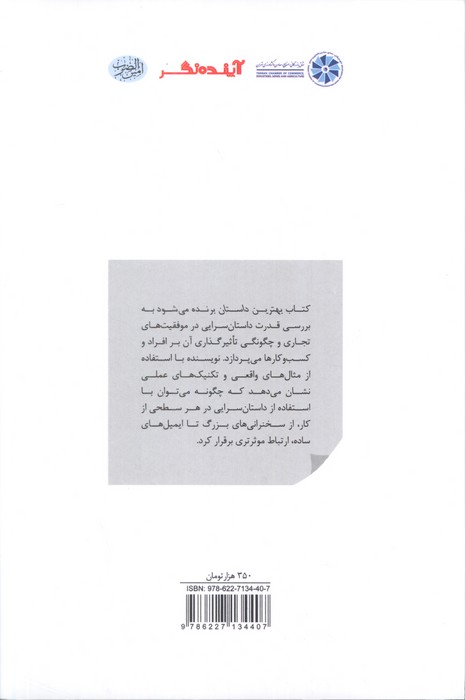 امین الضرب
آینده‌نگر
TEHRAN CHAMBER OF COMMERCE,
INDUSTRIES, MINES AND AGRICULTURE
کتاب بهترین داستان برنده می‌شود به
بررسی قدرت داستان‌سرایی در موفقیت‌های
تجاری و چگونگی تأثیرگذاری آن بر افراد و
کسب‌وکارها می‌پردازد. نویسنده با استفاده
از مثال‌های واقعی و تکنیک‌های عملی
نشان می‌دهد که چگونه می‌توان با
استفاده از داستان‌سرایی در هر سطحی از
کار، از سخنرانی‌های بزرگ تا ایمیل‌های
ساده، ارتباط موثرتری برقرار کرد.
۳۵۰ هزار تومان
ISBN: 978-622-7134-40-7
9 786227 134407